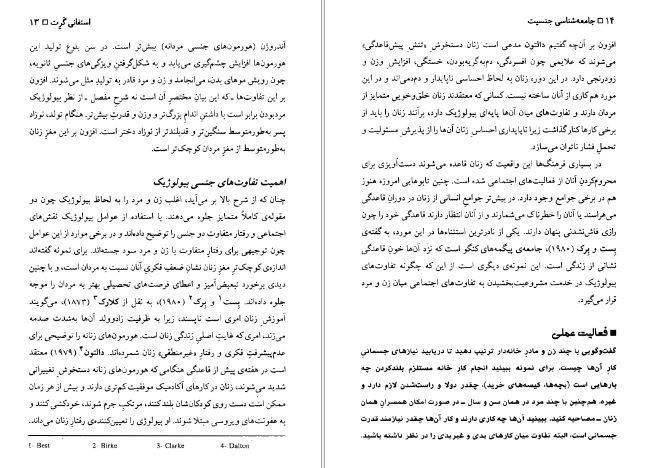 استفانی گرت □ ۱۳
آندروژن (هورمون‌های جنسی مردانه) بیش‌تر است. در سن بلوغ تولید این
هورمون‌ها افزایش چشم‌گیری می‌یابد و به شکل‌گرفتن ویژگی‌های جنسی ثانویه،
چون رویش موهای بدن، می‌انجامد و زن و مرد قادر به تولید مثل می‌شوند. افزون
بر این تفاوت‌ها ـ که این بیان مختصر آن است نه شرح مفصل ـ از نظر بیولوژیک
مردبودن برابر است با داشتن اندام بزرگ‌تر و وزن و قدرت بیش‌تر. هنگام تولد، نوزاد
پسر به‌طورمتوسط سنگین‌تر و قدبلندتر از نوزاد دختر است. افزون بر این مغز زنان
به‌طورمتوسط از مغز مردان کوچک‌تر است.
اهمیت تفاوت‌های جنسی بیولوژیک
چنان که از شرح بالا بر می‌آید، اغلب زن و مرد به لحاظ بیولوژیک چون دو
مقوله‌ی کاملاً متمایز جلوه می‌دهند. با استفاده از عوامل بیولوژیک نقش‌های
اجتماعی و رفتار متفاوت دو جنس را توضیح داده‌اند و در برخی موارد از این عوامل
چون توجیهی برای رفتار متفاوت با زن و مرد سود جسته‌اند. برای نمونه گفته‌اند
اندازه‌ی کوچک‌تر مغز زنان نشان ضعف فکری آنان نسبت به مردان است، و با چنین
دیدی برخورد تبعیض‌آمیز و اعطای فرصت‌های تحصیلی بهتر به مردان را موجه
جلوه داده‌اند. بست۱ و برک۲ (۱۹۸۰)، به نقل از کلارک۳ (۱۸۷۳)، می‌گویند
آموزش زنان امری است ناپسند، زیرا به ظرفیت زادوولد آن‌ها به‌شدت صدمه
می‌زند، امری که غایت اصلی زندگی زنان است. هورمون‌های زنانه را توضیحی برای
عدم‌پیشرفت فکری و رفتار «غیرمنطقی» زنان شمرده‌اند. دالتون۴ (۱۹۷۹) معتقد
است در هفته‌ی پیش از قاعدگی هنگامی که هورمون‌های زنانه دستخوش تغییراتی
شدید می‌شوند، زنان در کارهای آکادمیک موفقیت کم‌تری دارند و بیش از هر زمان
ممکن است دست روی کودکان‌شان بلند کنند، مرتکب جرم شوند، خودکشی کنند و
به عفونت‌های ویروسی مبتلا شوند. او بیولوژی را تعیین‌کننده‌ی رفتار زنان می‌داند.
1- Best 2- Birke 3- Clarke 4- Dalton
۱۴ □ جامعه‌شناسی جنسیت
افزون بر آن‌چه گفتیم دالتون مدعی است زنان دستخوش «تنش پیش‌قاعدگی»
می‌شوند که علایمی چون افسردگی، دم‌به‌گریه‌بودن، خستگی، افزایش وزن و
زودرنجی دارد. در این دوره زنان به لحاظ احساسی ناپایدار و دم‌دمی‌اند و در این
مورد هم کاری از آنان ساخته نیست. کسانی که معتقدند زنان خلق‌وخویی متمایز از
مردان دارند و تفاوت‌های میان آن‌ها پایه‌ای بیولوژیک دارد، برآنند زنان را باید از
برخی کارها کنار گذاشت زیرا ناپایداری احساسی زنان آن‌ها را از پذیرش مسئولیت و
تحمل فشار ناتوان می‌سازد.
در بسیاری فرهنگ‌ها این واقعیت که زنان قاعده می‌شوند دست‌آویزی برای
محروم‌کردن آنان از فعالیت‌های اجتماعی شده است. چنین تابوهایی امروزه هنوز
هم در برخی جوامع وجود دارد. در بیش‌تر جوامع انسانی از زنان در دوران قاعدگی
می‌هراسند یا آنان را خطرناک می‌شمارند و از آنان انتظار دارند قاعدگی خود را چون
رازی فاش‌نشدنی پنهان دارند. یکی از نادرترین استثناها در این مورد، به گفته‌ی
بست و برک (۱۹۸۰)، جامعه‌ی پیگمه‌های کنگو است که نزد آن‌ها خون قاعدگی
نشانی از زندگی است. این نمونه‌ی دیگری است از این که چگونه تفاوت‌های
بیولوژیک در خدمت مشروعیت‌بخشیدن به تفاوت‌های اجتماعی میان زن و مرد
قرار می‌گیرد.
■ فعالیت عملی
گفت‌وگویی با چند زن و مادر خانه‌دار ترتیب دهید تا دریابید نیازهای جسمانی
کار آن‌ها چیست. برای نمونه ببینید انجام کار خانه مستلزم بلندکردن چه
بارهایی است (بچه‌ها، کیسه‌های خرید)، چقدر دولا و راست‌شدن لازم دارد و
غیره. هم‌چنین با چند مرد در همان سن و سال ـ در صورت امکان همسران همان
زنان ـ مصاحبه کنید. ببینید آن‌ها چه کاری دارند و کار آن‌ها چقدر نیازمند قدرت
جسمانی است. البته تفاوت میان کارهای یدی و غیریدی را در نظر داشته باشید.